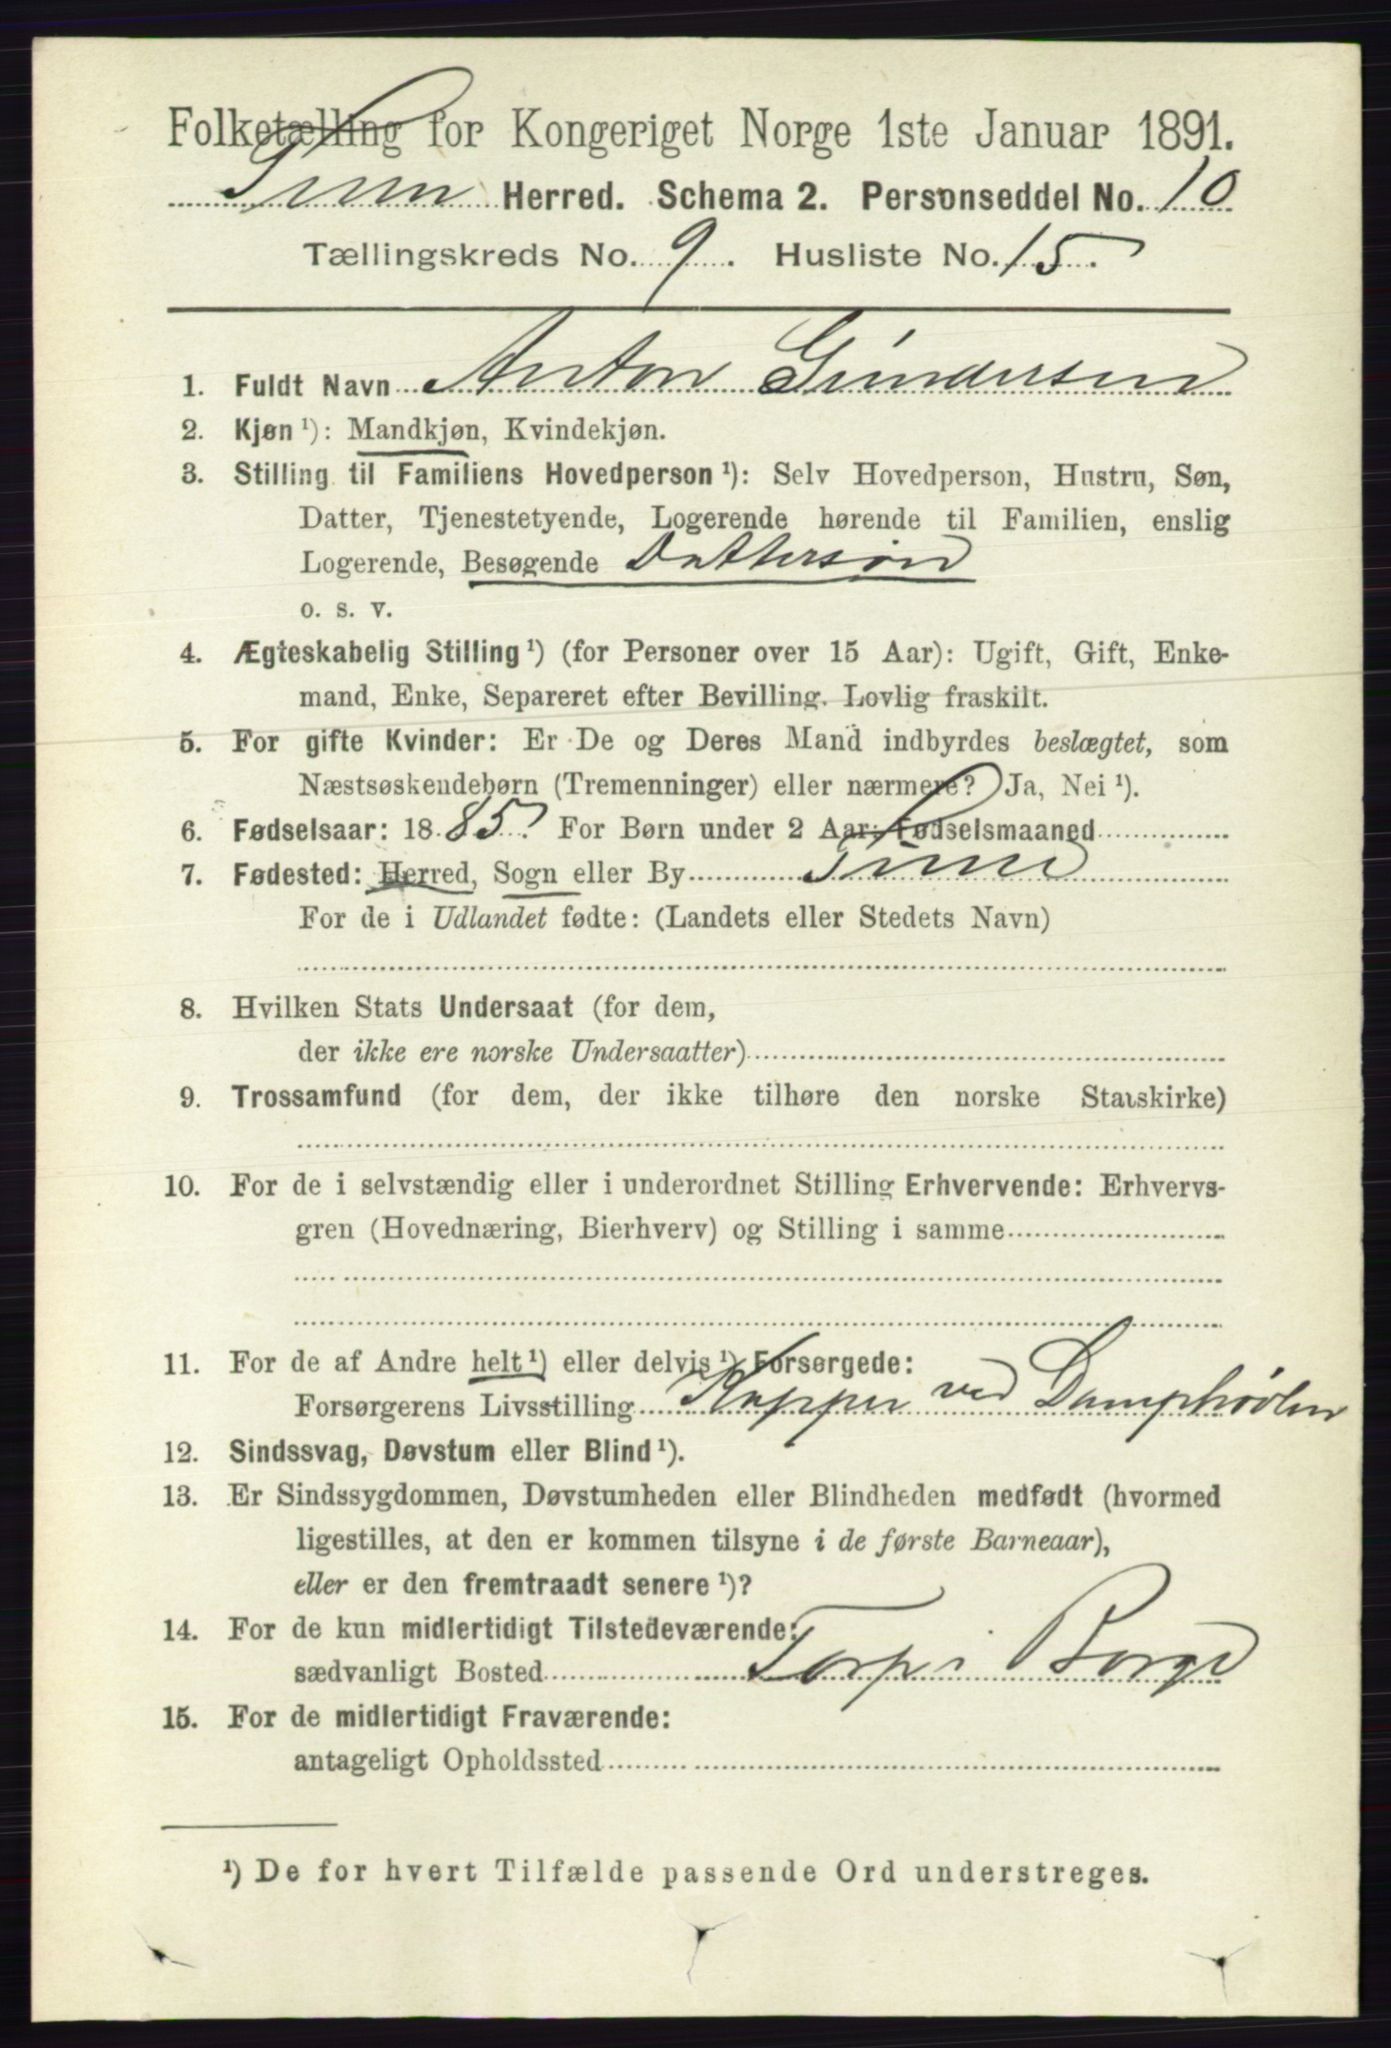 Folketælling for Kongeriget Norge 1ste Januar 1891.
Tune Herred. Schema 2. Personseddel No. 10
Tællingskreds No. 9. Husliste No. 15.
1. Fuldt Navn Anton Gundersen
2. Kjøn ¹): Mandkjøn, Kvindekjøn.
3. Stilling til Familiens Hovedperson ¹): Selv Hovedperson, Hustru, Søn,
Datter, Tjenestetyende, Logerende hørende til Familien, enslig
Logerende, Besøgende Dattersøn
o. s. v.
4. Ægteskabelig Stilling ¹) (for Personer over 15 Aar): Ugift, Gift, Enke-
mand, Enke, Separeret efter Bevilling. Lovlig fraskilt.
5. For gifte Kvinder: Er De og Deres Mand indbyrdes beslægtet, som
Næstsøskendebørn (Tremenninger) eller nærmere? Ja, Nei ¹).
6. Fødselsaar: 1885. For Børn under 2 Aar: Fødselsmaaned
7. Fødested: Herred, Sogn eller By Tune
For de i Udlandet fødte: (Landets eller Stedets Navn)
8. Hvilken Stats Undersaat (for dem,
der ikke ere norske Undersaatter)
9. Trossamfund (for dem, der ikke tilhøre den norske Statskirke)
10. For de i selvstændig eller i underordnet Stilling Erhvervende: Erhvervs-
gren (Hovednæring, Bierhverv) og Stilling i samme
11. For de af Andre helt ¹) eller delvis ¹) Forsørgede:
Forsørgerens Livsstilling Kapper ved Damphøvlen
12. Sindssvag, Døvstum eller Blind ¹).
13. Er Sindssygdommen, Døvstumheden eller Blindheden medfødt (hvormed
ligestilles, at den er kommen tilsyne i de første Barneaar),
eller er den fremtraadt senere ¹)?
14. For de kun midlertidigt Tilstedeværende:
sædvanligt Bosted Torp i Borge
15. For de midlertidigt Fraværende:
antageligt Opholdssted
¹) De for hvert Tilfælde passende Ord understreges.